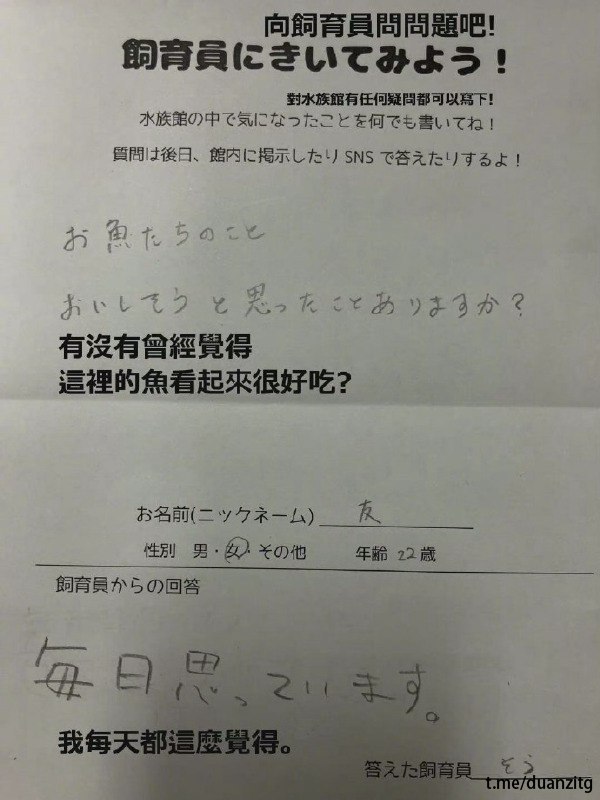 向飼育員問問題吧!
飼育員にきいてみよう!
對水族館有任何疑問都可以寫下!
水族館の中で気になったことを何でも書いてね!
質問は後日、館内に掲示したり SNS で答えたりするよ!
お魚たちのこと
おいしそうと思ったことありますか?
有沒有曾經覺得
這裡的魚看起來很好吃?
お名前(ニックネーム) 友
性別 男・女・その他 年齢 22 歳
飼育員からの回答
毎日思っています。
我每天都這麼覺得。
答えた飼育員 そう
t.me/duanzitg